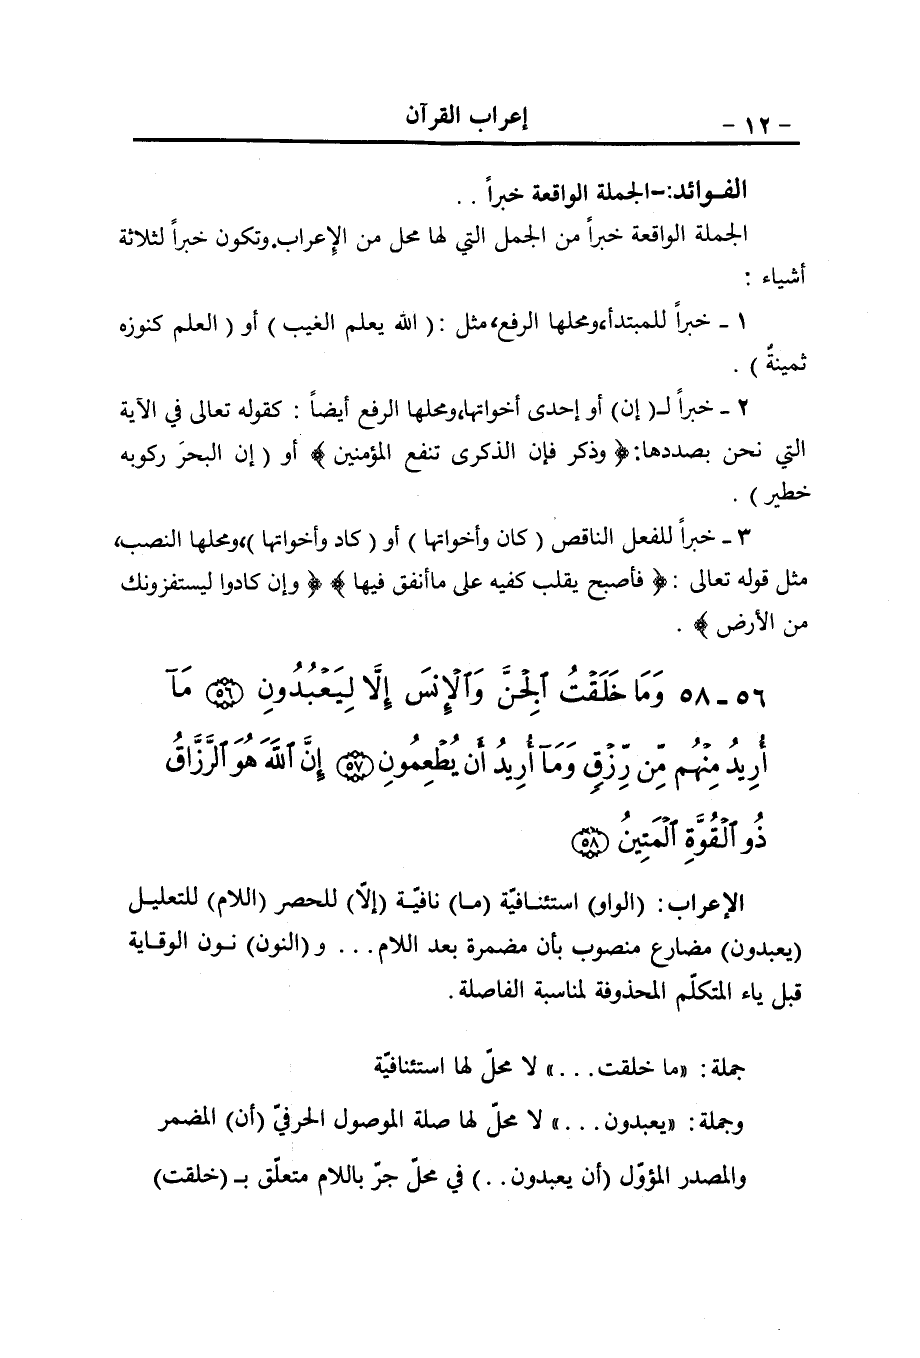 إعراب القرآن
- ١٢ -
الفـوائد:-الجملة الواقعة خبراً . .
الجملة الواقعة خبراً من الجمل التي لها محل من الإعراب.وتكون خبراً لثلاثة
أشياء :
١ ـ خبراً للمبتدأ،ومحلها الرفع،مثل :( الله يعلم الغيب ) أو ( العلم كنوزه
ثمينةٌ ) .
٢ ـ خبراً لـ( إن) أو إحدى أخواتها،ومحلها الرفع أيضاً : كقوله تعالى في الآية
التي نحن بصددها:﴿ وذكر فإن الذكرى تنفع المؤمنين ﴾ أو ( إن البحرَ ركوبه
خطير ) .
٣ ـ خبراً للفعل الناقص ( كان وأخواتها ) أو ( كاد وأخواتها )،ومحلها النصب،
مثل قوله تعالى :﴿ فأصبح يقلب كفيه على ماأنفق فيها ﴾ ﴿ وإن كادوا ليستفزونك
من الأرض ﴾ .
٥٦ ـ ٥٨ وَمَا خَلَقْتُ ٱلْجِنَّ وَٱلْإِنسَ إِلَّا لِيَعْبُدُونِ ﴿٥٦﴾ مَآ
أُرِيدُ مِنْهُم مِّن رِّزْقٍ وَمَآ أُرِيدُ أَن يُطْعِمُونِ ﴿٥٧﴾ إِنَّ ٱللَّهَ هُوَ ٱلرَّزَّاقُ
ذُو ٱلْقُوَّةِ ٱلْمَتِينُ ﴿٥٨﴾
الإعراب: (الواو) استئنـافيّة (مـا) نافيـة (إلّا) للحصر (اللام) للتعليـل
(يعبدون) مضارع منصوب بأن مضمرة بعد اللام... و (النون) نـون الوقاية
قبل ياء المتكلّم المحذوفة لمناسبة الفاصلة.
جملة: «ما خلقت...» لا محلّ لها استئنافيّة
وجملة: «يعبدون...» لا محلّ لها صلة الموصول الحرفيّ (أن) المضمر
والمصدر المؤوّل (أن يعبدون..) في محلّ جرّ باللام متعلّق بـ (خلقت)